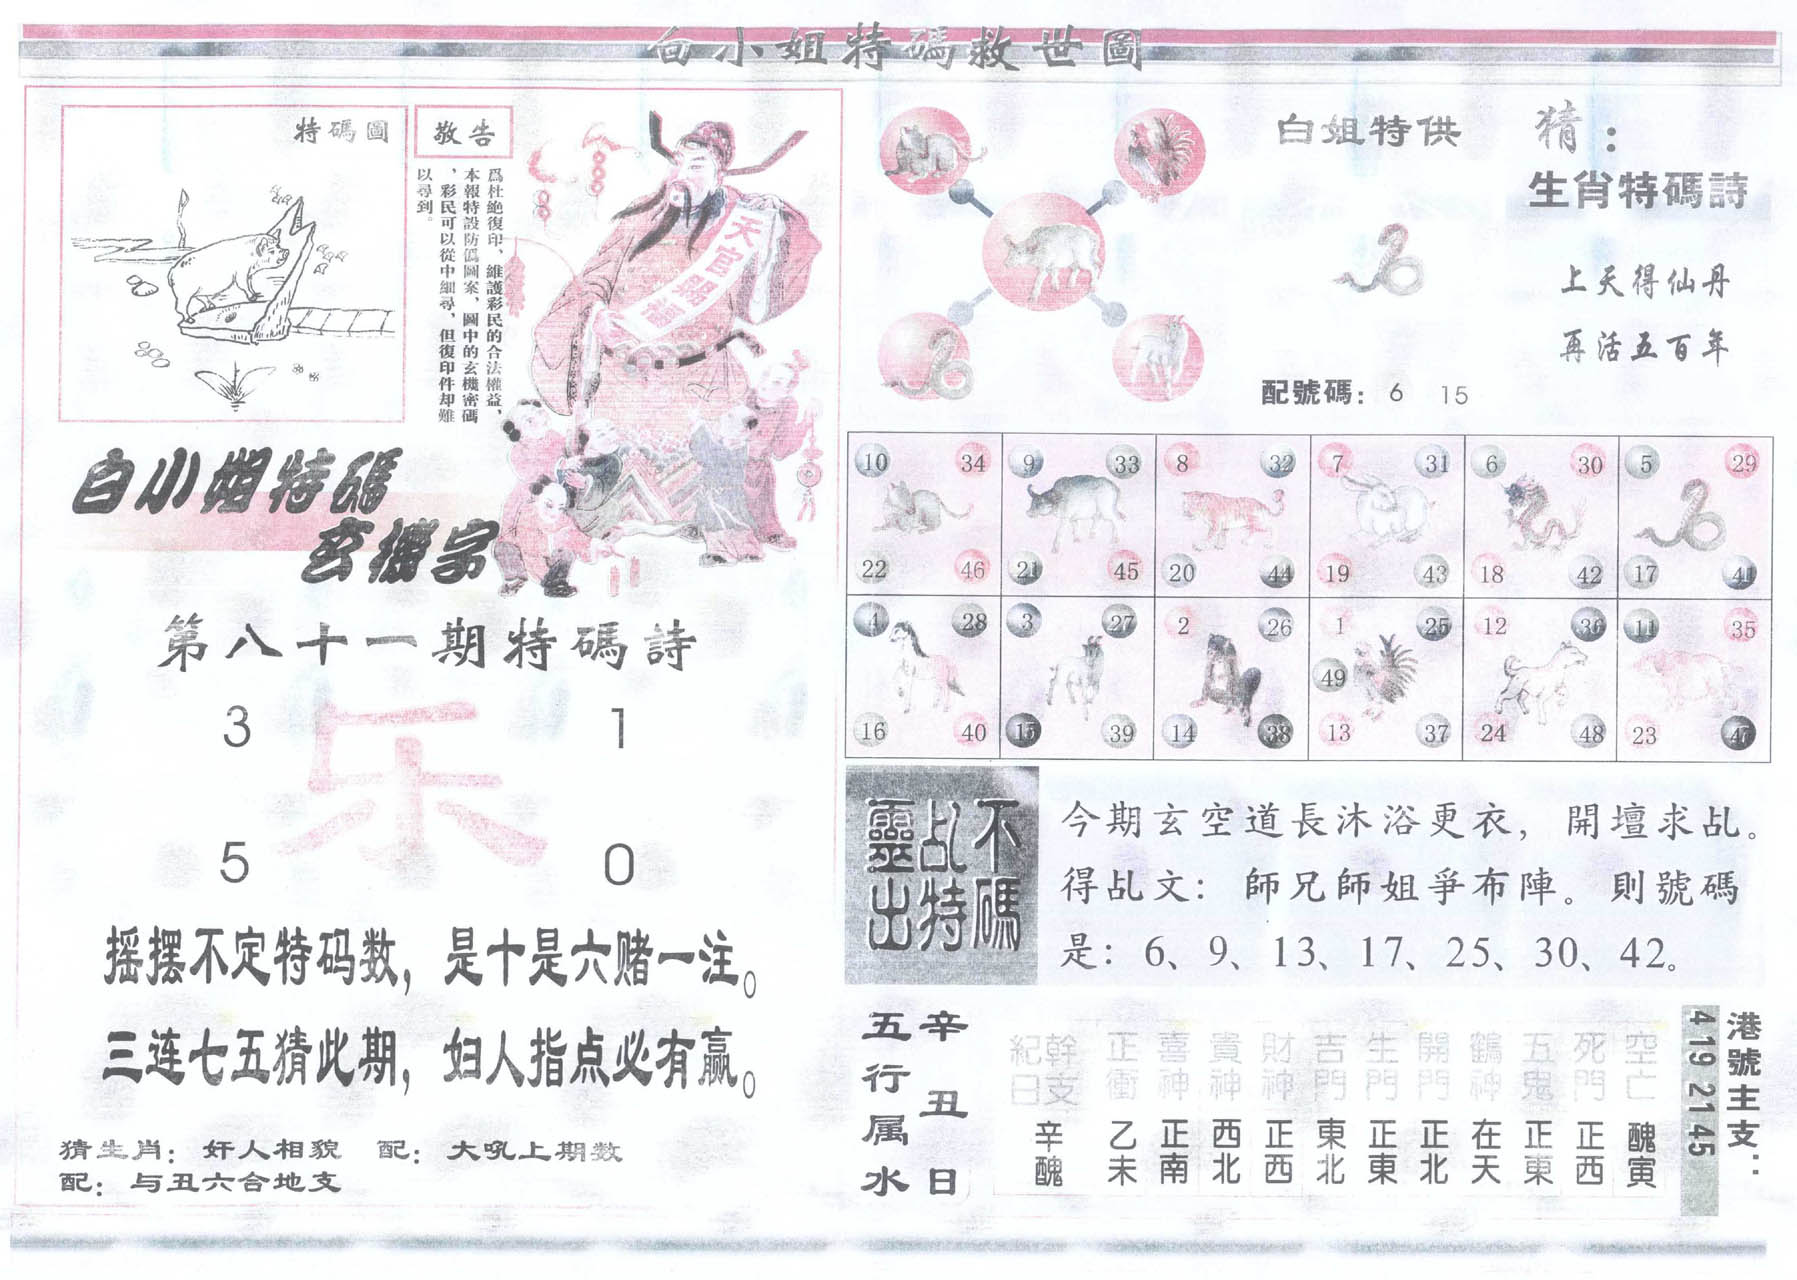 白小姐特碼救世圖
特碼圖
敬告
爲杜絶復印、維護彩民的合法權益,
本報特設防僞圖案、圖中的玄機密碼
,彩民可以從中細尋,但復印件却難
以尋到。
天官賜福
白小姐特碼
玄機字
第八十一期特碼詩
3 1
乐
5 0
摇摆不定特码数，是十是六赌一注。
三连七五猜此期，妇人指点必有赢。
猜生肖：奸人相貌 配：大吼上期数
配：与丑六合地支
白姐特供
配號碼：6 15
猜：
生肖特碼詩
上天得仙丹
再活五百年
10 34 9 33 8 32 7 31 6 30 5 29
22 46 21 45 20 44 19 43 18 42 17 41
4 28 3 27 2 26 1 25 12 36 11 35
49
16 40 15 39 14 38 13 37 24 48 23 47
不碼
乩特
靈出
今期玄空道長沐浴更衣，開壇求乩。
得乩文：師兄師姐爭布陣。則號碼
是：6、9、13、17、25、30、42。
辛丑日
五行属水
幹支紀日 正衝 喜神 貴神 財神 吉門 生門 開門 鶴神 五鬼 死門 空亡
辛醜 乙未 正南 西北 正西 東北 正東 正北 在天 正東 正西 醜寅
港號主支：
4 19 21 45